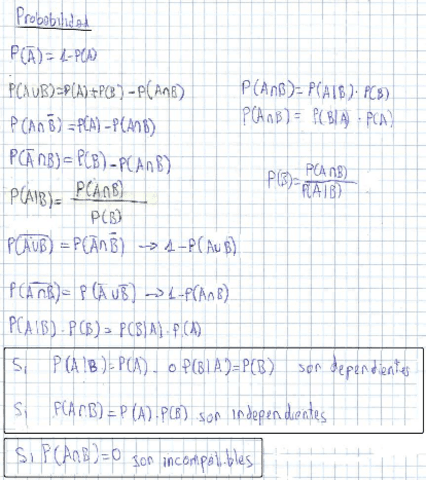 Probabilidad
P(Ā) = 1-P(A)
P(A∪B)=P(A)+P(B)-P(A∩B)
P(A∩B̄)=P(A)-P(A∩B)
P(Ā∩B)=P(B)-P(A∩B)
P(A|B)= P(A∩B) / P(B)
P(A∩B)= P(A|B)·P(B)
P(A∩B)= P(B|A)·P(A)
P(B)= P(A∩B) / P(A|B)
P(A̅∪̅B̅)=P(Ā∩B̄) → 1-P(A∪B)
P(A̅∩̅B̅)=P(Ā∪B̄) → 1-P(A∩B)
P(A|B)·P(B)=P(B|A)·P(A)
Si P(A|B)=P(A) o P(B|A)=P(B) son dependientes
Si P(A∩B)=P(A)·P(B) son independientes
Si P(A∩B)=0 son incompatibles